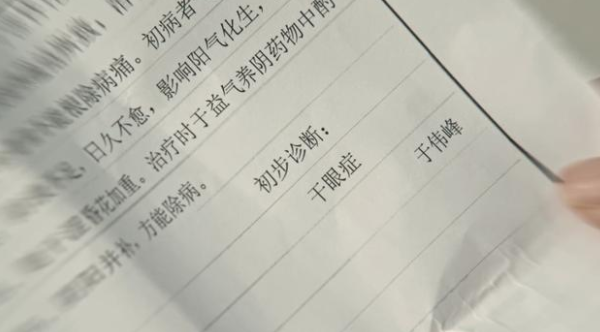 除病痛。初病者
日久不愈，影响阳气化生，
花加重。治疗时于益气养阴药物中酌
并补，方能除病。
初步诊断：
干眼症
于伟峰